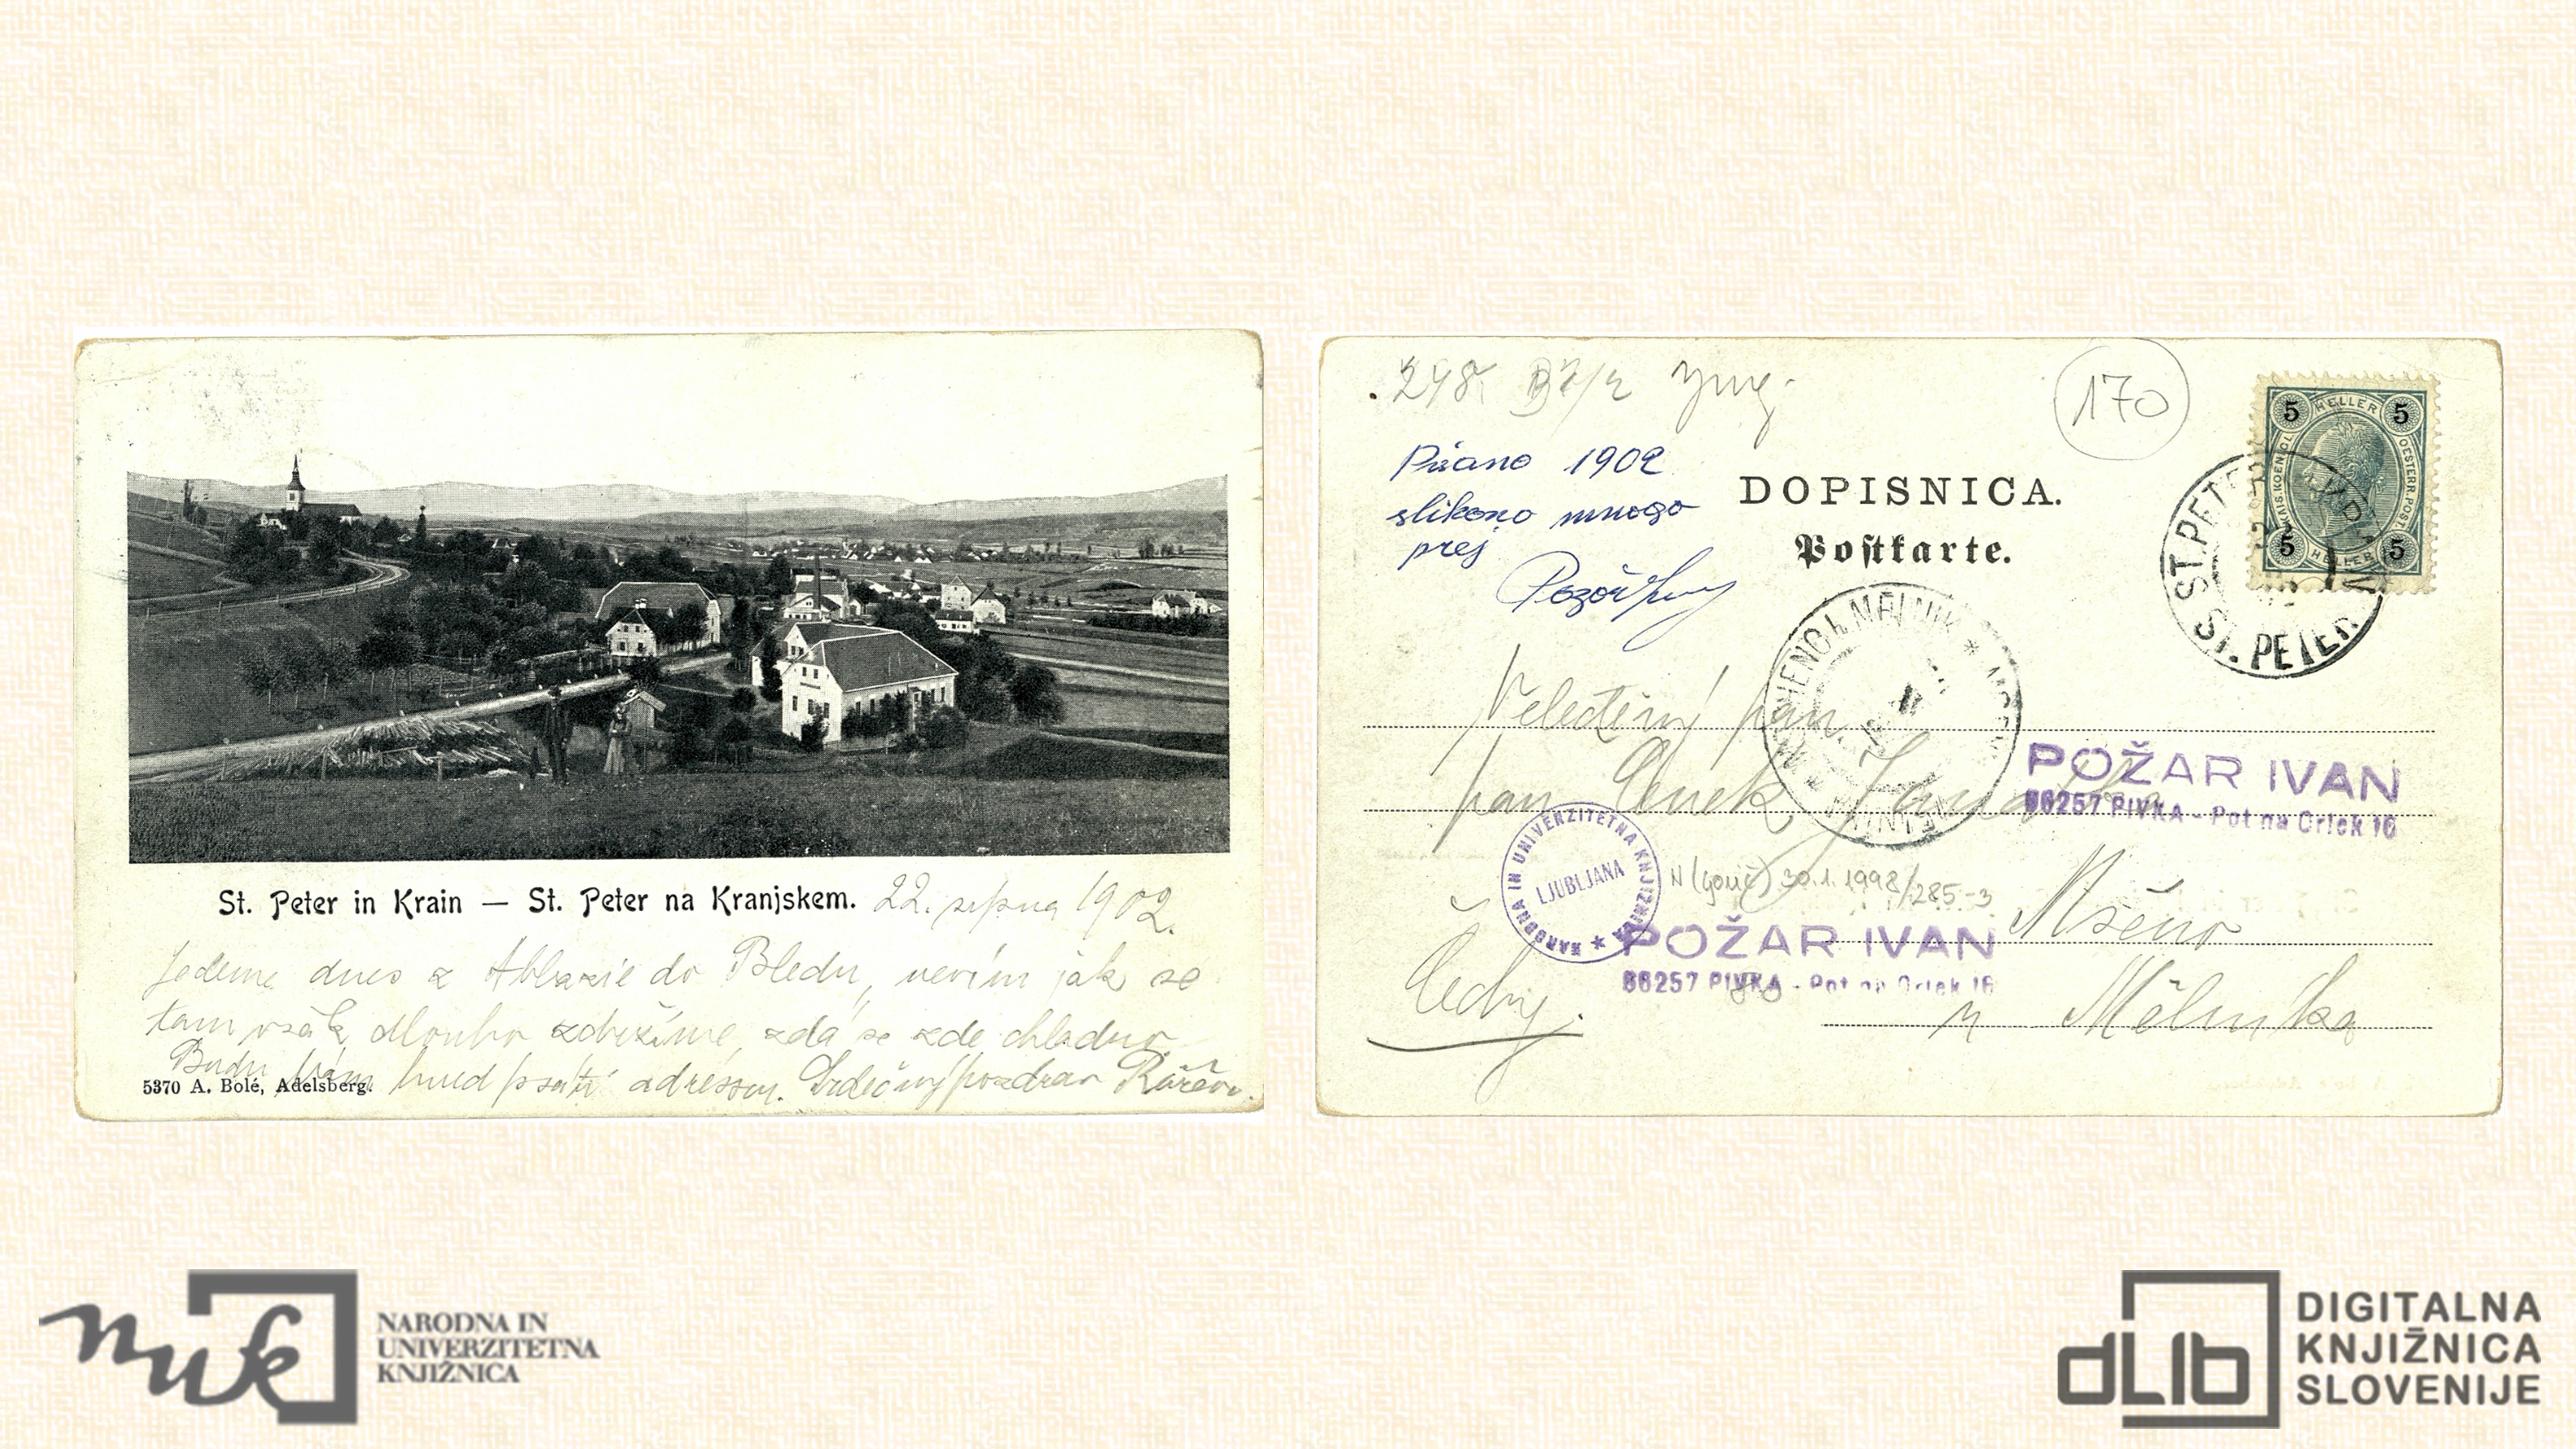 St. Peter in Krain — St. Peter na Kranjskem. 22. srpna 1902.
Jedeme dnes z Abbazie do Bledu, nevím jak se
tam však dlouho zdržíme, zdá se zde chladno.
Budu Vám hned psáti adressu. Srdečný pozdrav
5370 A. Bolé, Adelsberg.
298
170
Pisano 1902
slikano mnogo
prej
DOPISNICA.
Postkarte.
5 HELLER 5
KAIS. KOENIGL. OESTERR. POST
5 HELLER 5
ST. PETER
ST. PETER
Veletěný pan
pan Čeněk
POŽAR IVAN
66257 PIVKA - Pot na Orlek 16
NARODNA IN UNIVERZITETNA KNJIŽNICA
LJUBLJANA
30.1.1998/285-3
POŽAR IVAN
66257 PIVKA - Pot na Orlek 16
Mšeno
Čechy.
u Mělníka
nuk
NARODNA IN
UNIVERZITETNA
KNJIŽNICA
dLib
DIGITALNA
KNJIŽNICA
SLOVENIJE